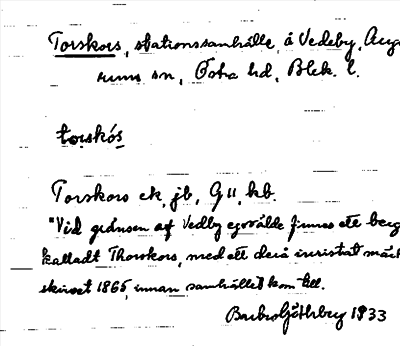 Torskors, stationssamhälle, å Vedeby, Aug
rums sn, Östra hd, Blek. l.
torskós
Torskors ek, jb, G11, kb.
"Vid gränsen af Vedby egovälde finnes ett berg
kalladt Thorskors, med ett deri inristat
1865, innan samhället kom till.
Barbro Göthberg 1933